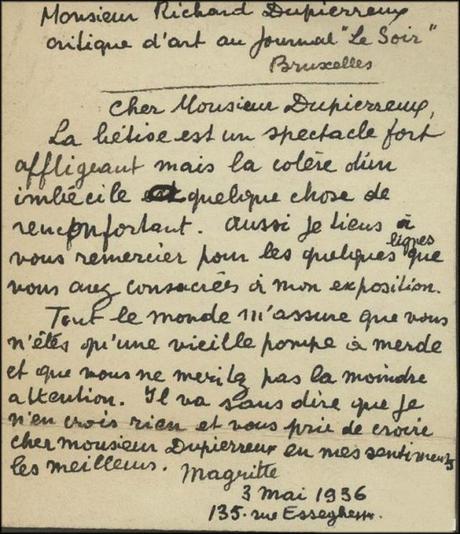 Monsieur Richard Dupierreux
critique d'art au Journal "Le Soir"
Bruxelles
Cher Monsieur Dupierreux,
La bêtise est un spectacle fort
affligeant mais la colère d'un
imbécile a quelque chose de
renconfortant. Aussi je tiens à
vous remercier pour les quelques lignes que
vous avez consacrées à mon exposition.
Tout le monde m'assure que vous
n'êtes qu'une vieille pompe à merde
et que vous ne meritez pas la moindre
attention. Il va sans dire que je
n'en crois rien et vous prie de croire
cher monsieur Dupierreux en mes sentiments
les meilleurs. Magritte
3 mai 1936
135. rue Esseghem.